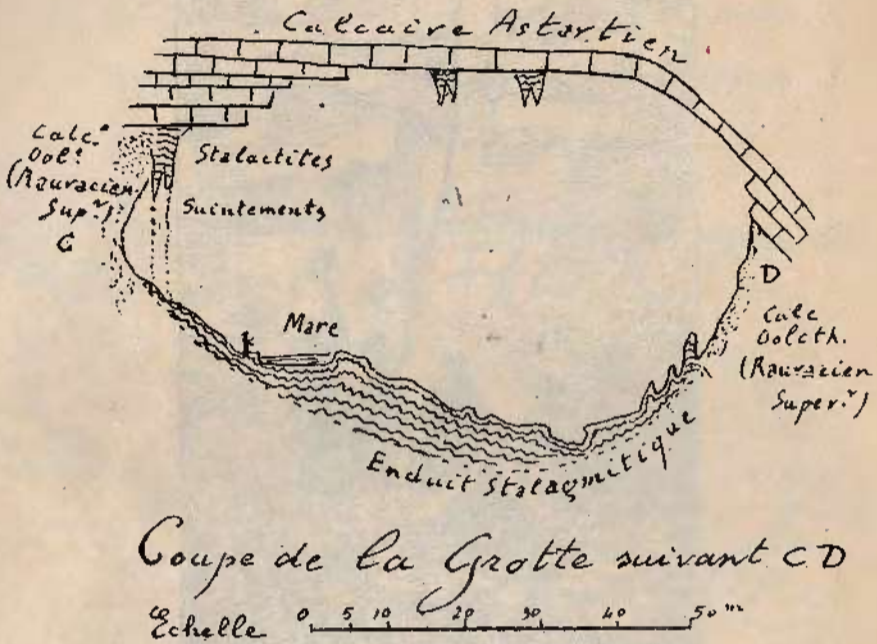 Calcaire Astartien
Calc.e
Ool.e
(Rauracien
Sup.r)
C
Stalactites
Suintements
Mare
D
Calc
Oolith.
(Rauracien
Super.r)
Enduit Stalagmitique
Coupe de la Grotte suivant CD
Echelle 0 5 10 20 30 40 50 m